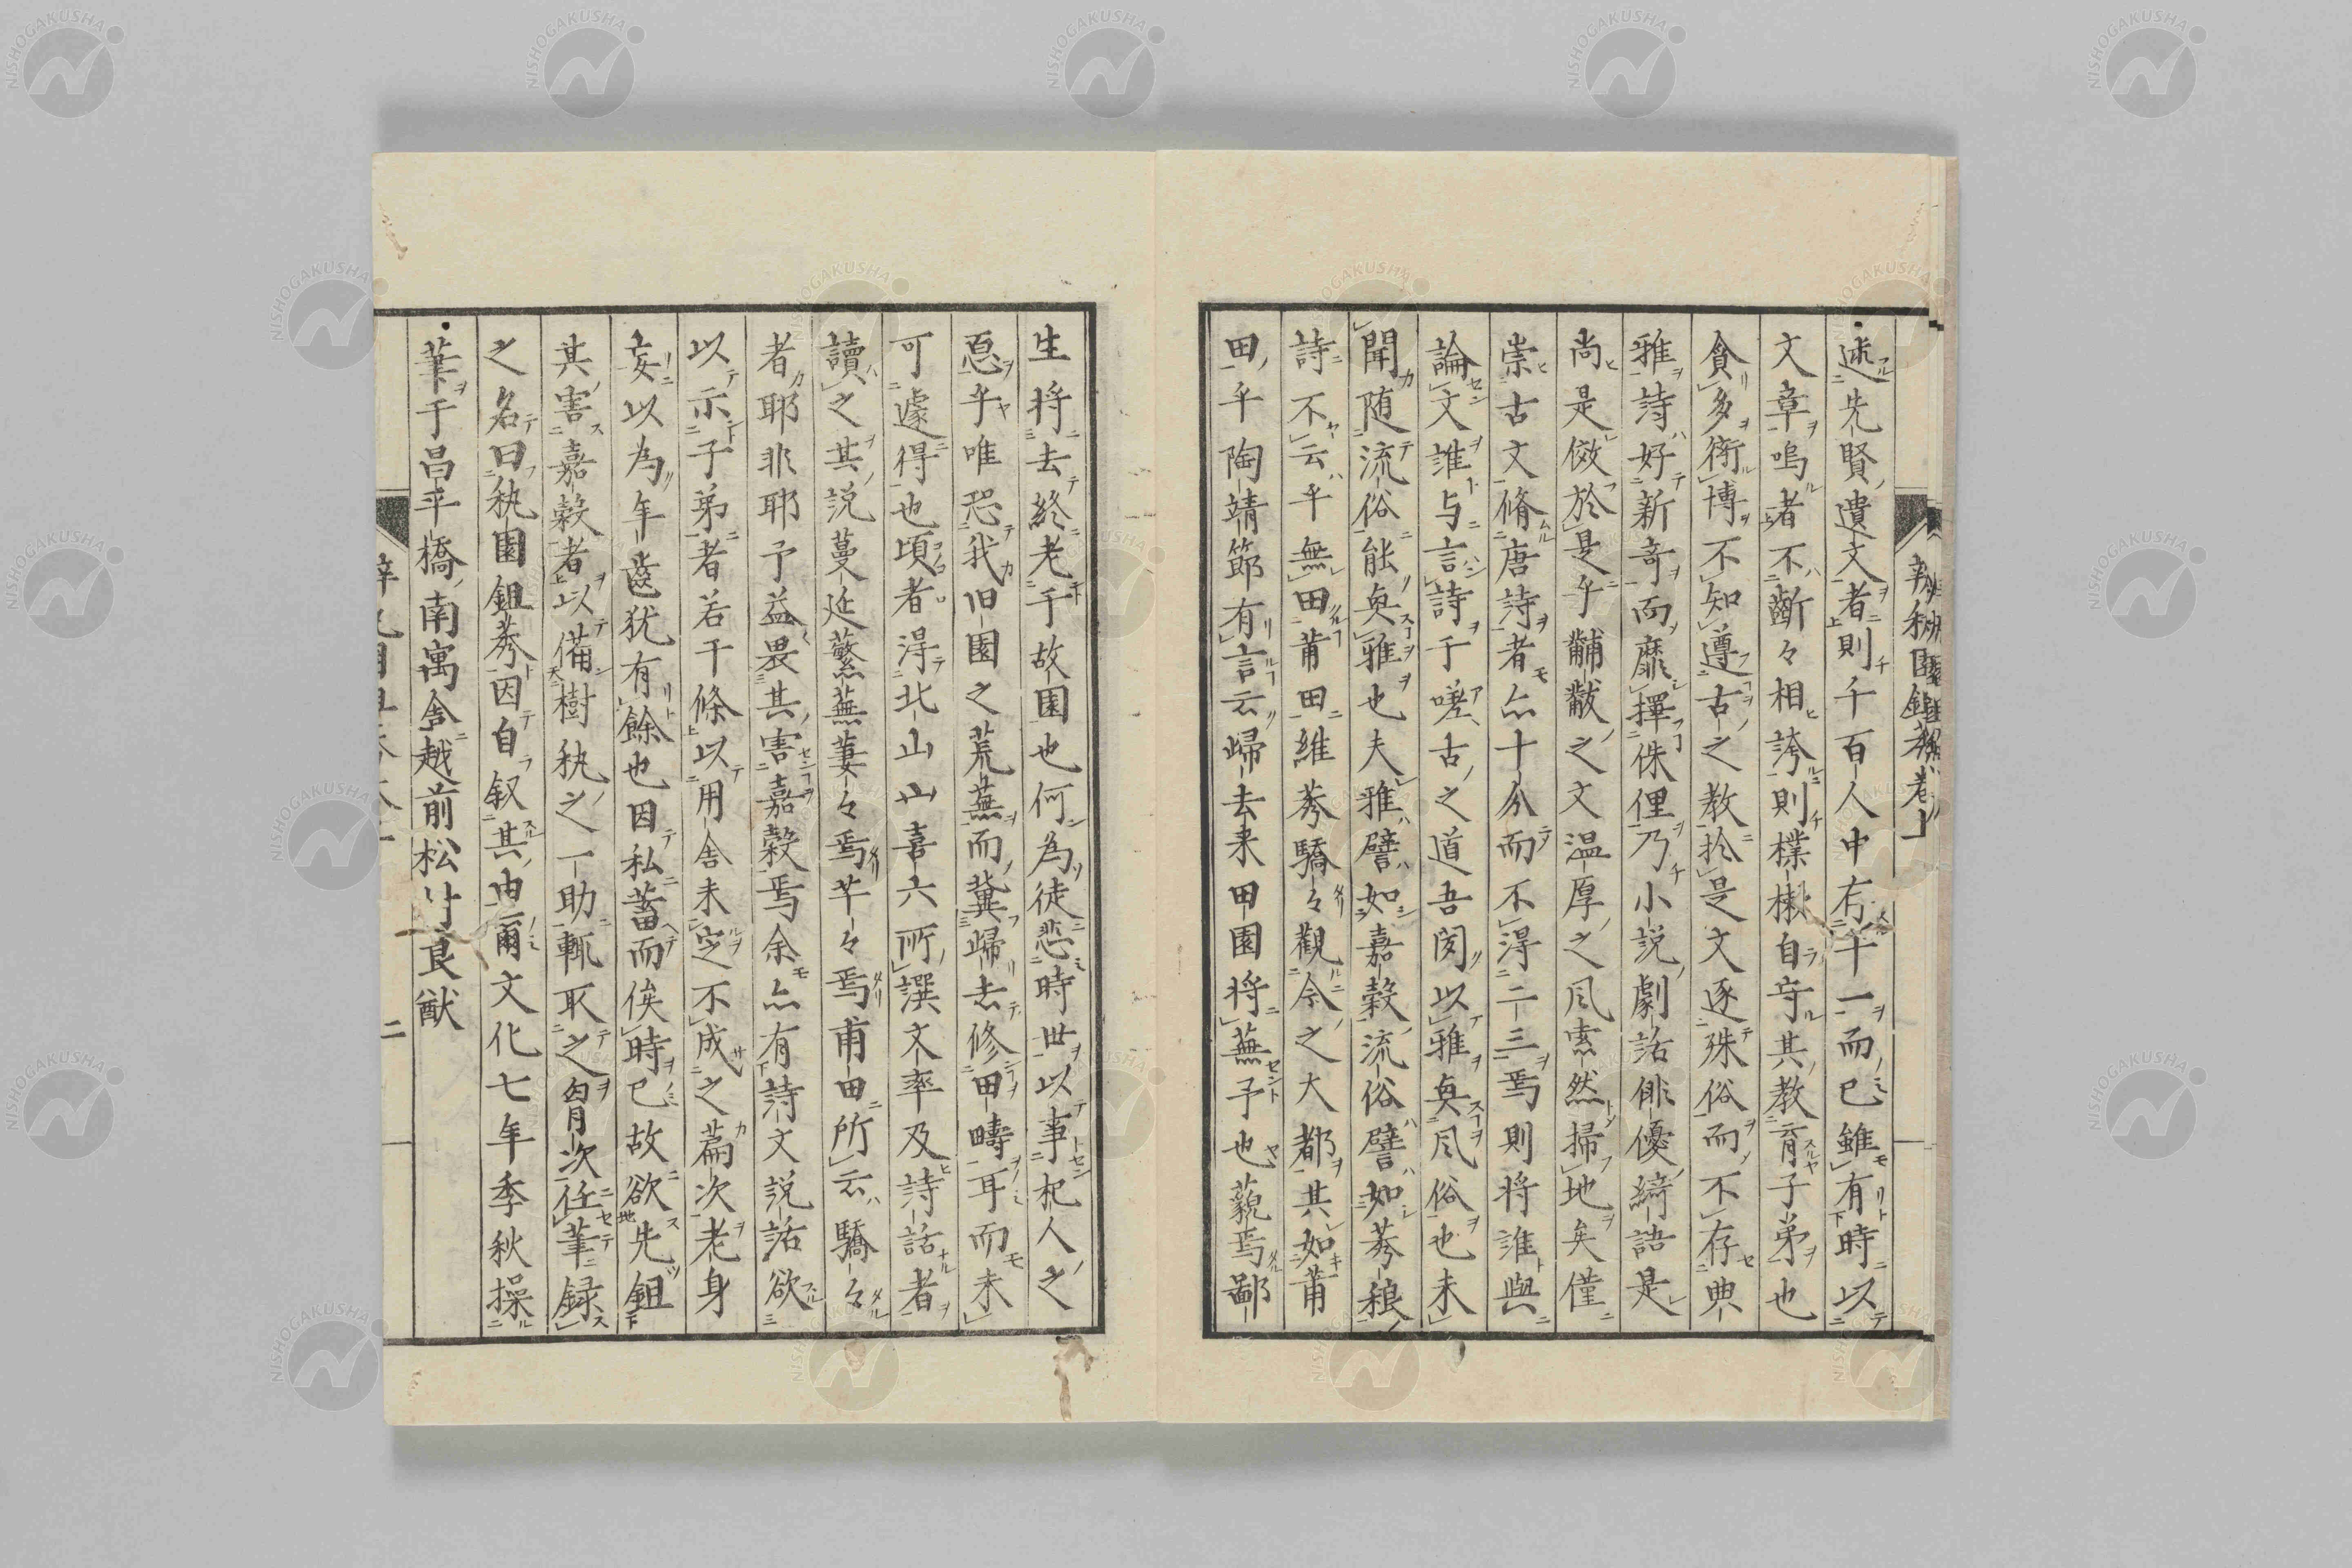 述先賢遺文者則千百人中有千一而已雖有時以
文章鳴者不齗々相誇則樸樕自守其教育子弟也
貪多衒博不知遵古之教於是文逐殊俗而不存典
雅詩好新奇而靡擇侏俚乃小説劇話俳優綺語是
尚是傚於是乎黼黻之文温厚之風索然掃地矣僅
崇古文脩唐詩者亦十分而不得二三焉則将誰與
論文誰与言詩于嗟古之道吾閔以雅奥風俗也未
聞随流俗能奥雅也夫雅譬如嘉穀流俗譬如莠稂
詩不云乎無田甫田維莠驕々觀今之大都其如莆
田乎陶靖節有言云帰去来田園将蕪予也藐焉鄙
生将去終老于故園也何為徒悲時世以事杞人之
憂乎唯恐我旧園之荒蕪而冀帰去修田疇耳而未
可遽得也頃者得北山山喜六所譔文率及詩話者
讀之其説蔓延蘩蕪萋々焉芊々焉甫田所云驕々
者耶非耶予益畏其害嘉穀焉余亦有詩文説話欲
以示子弟者若干條以用舎未定不成之篇次老身
妄以為年歯犹有餘也因私蓄而俟時已故欲先鉏
其害嘉穀者以備樹秇之一助輒取之胷次任筆録
之名曰秇園鉏莠因自叙其由爾文化七年季秋操
筆于昌平橋南寓舎越前松村良猷